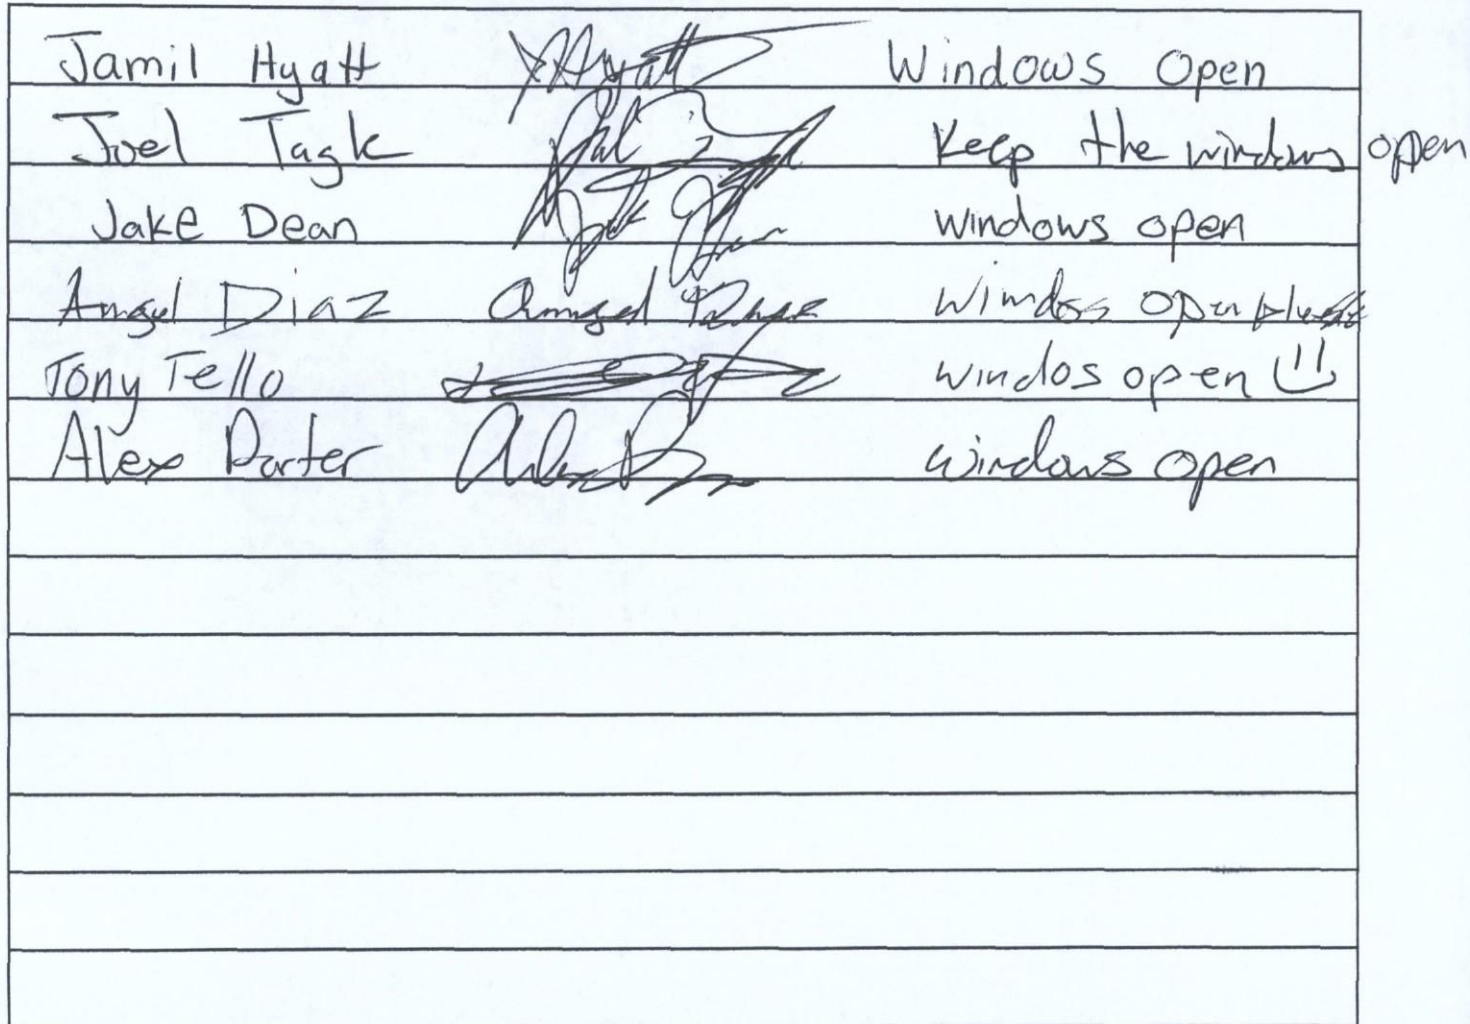 Jamil Hyatt JHyatt Windows Open
Joel Tagk Keep the windows open
Jake Dean windows open
Angel Diaz Angel Diaz windos open please
Tony Tello windos open
Alex Porter windows open